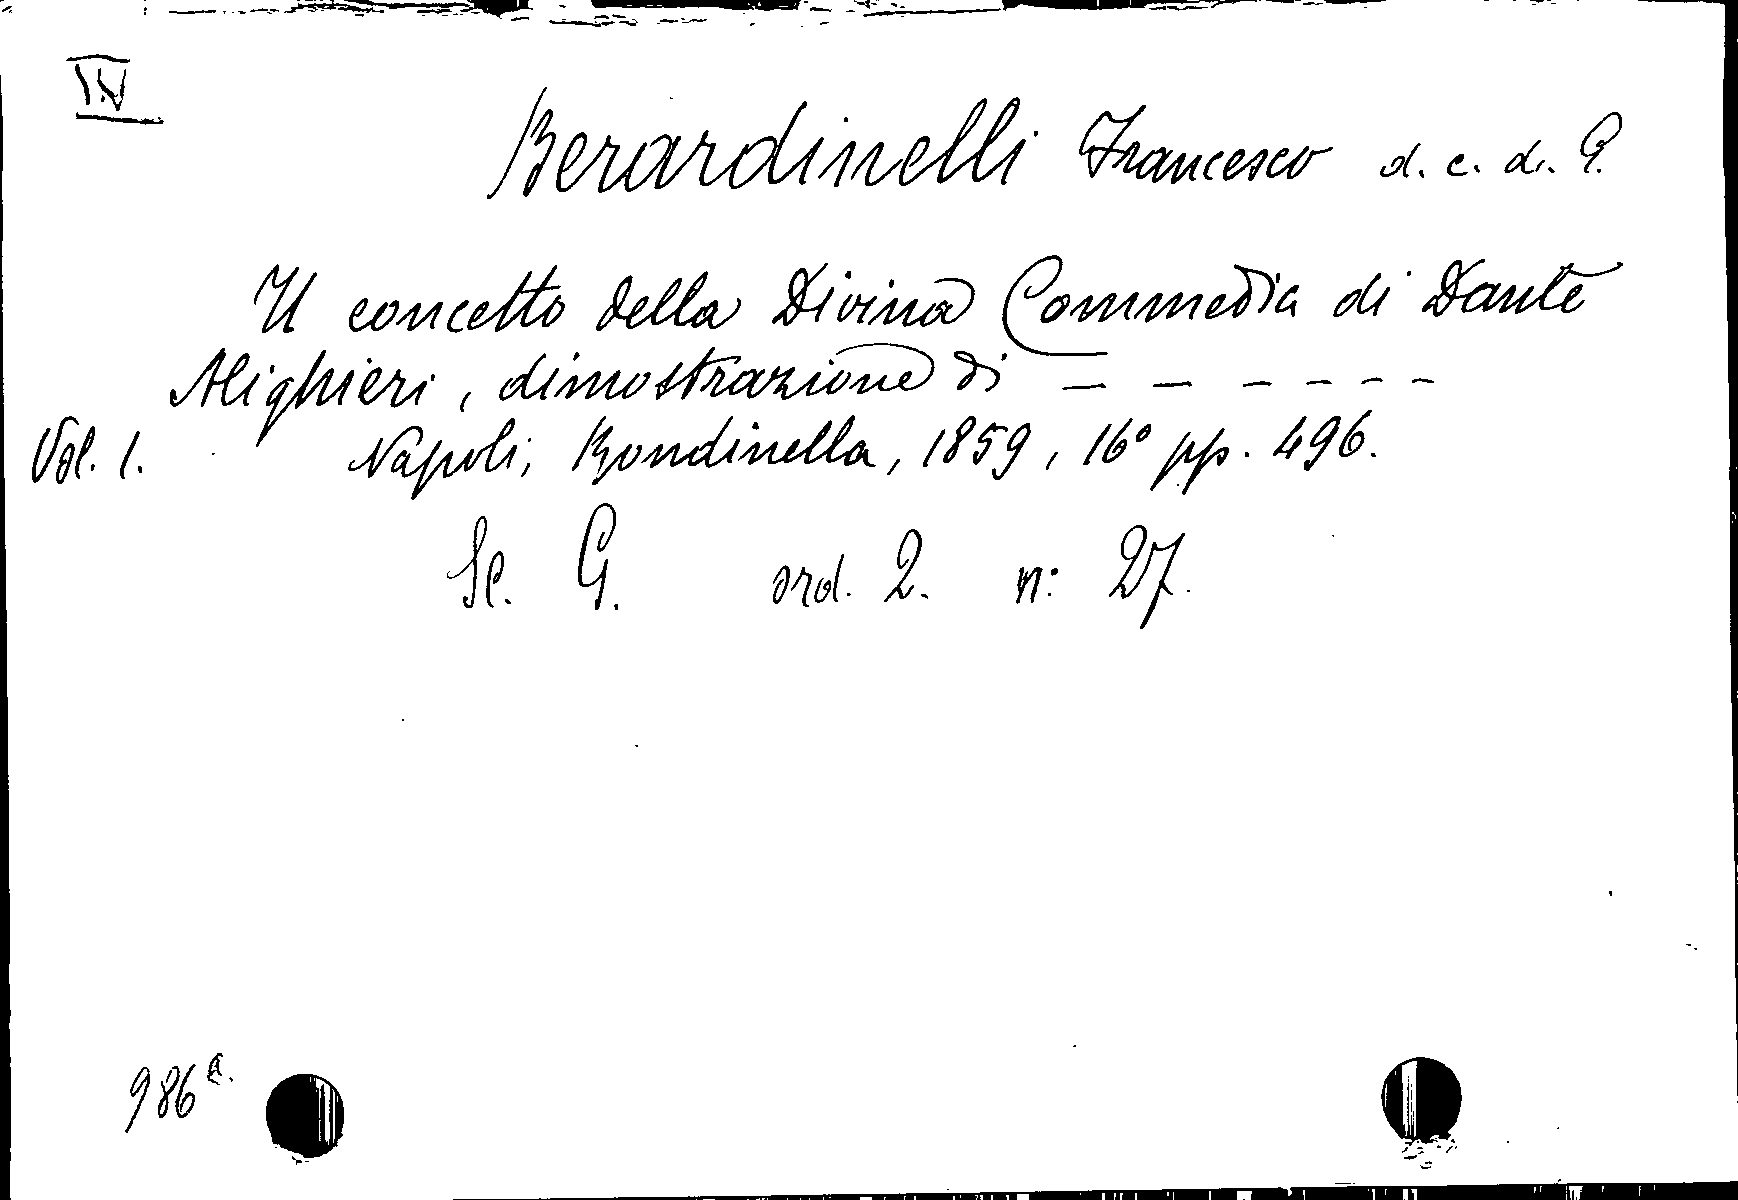 IV
Berardinelli Francesco d. c. d. G.
Il concetto della Divina Commedia di Dante
Alighieri, dimostrazione di — — — — — —
Vol. 1. Napoli, Rondinella, 1859, 16° pp. 496.
Sc. G. ord. 2. n: 27.
986 a.